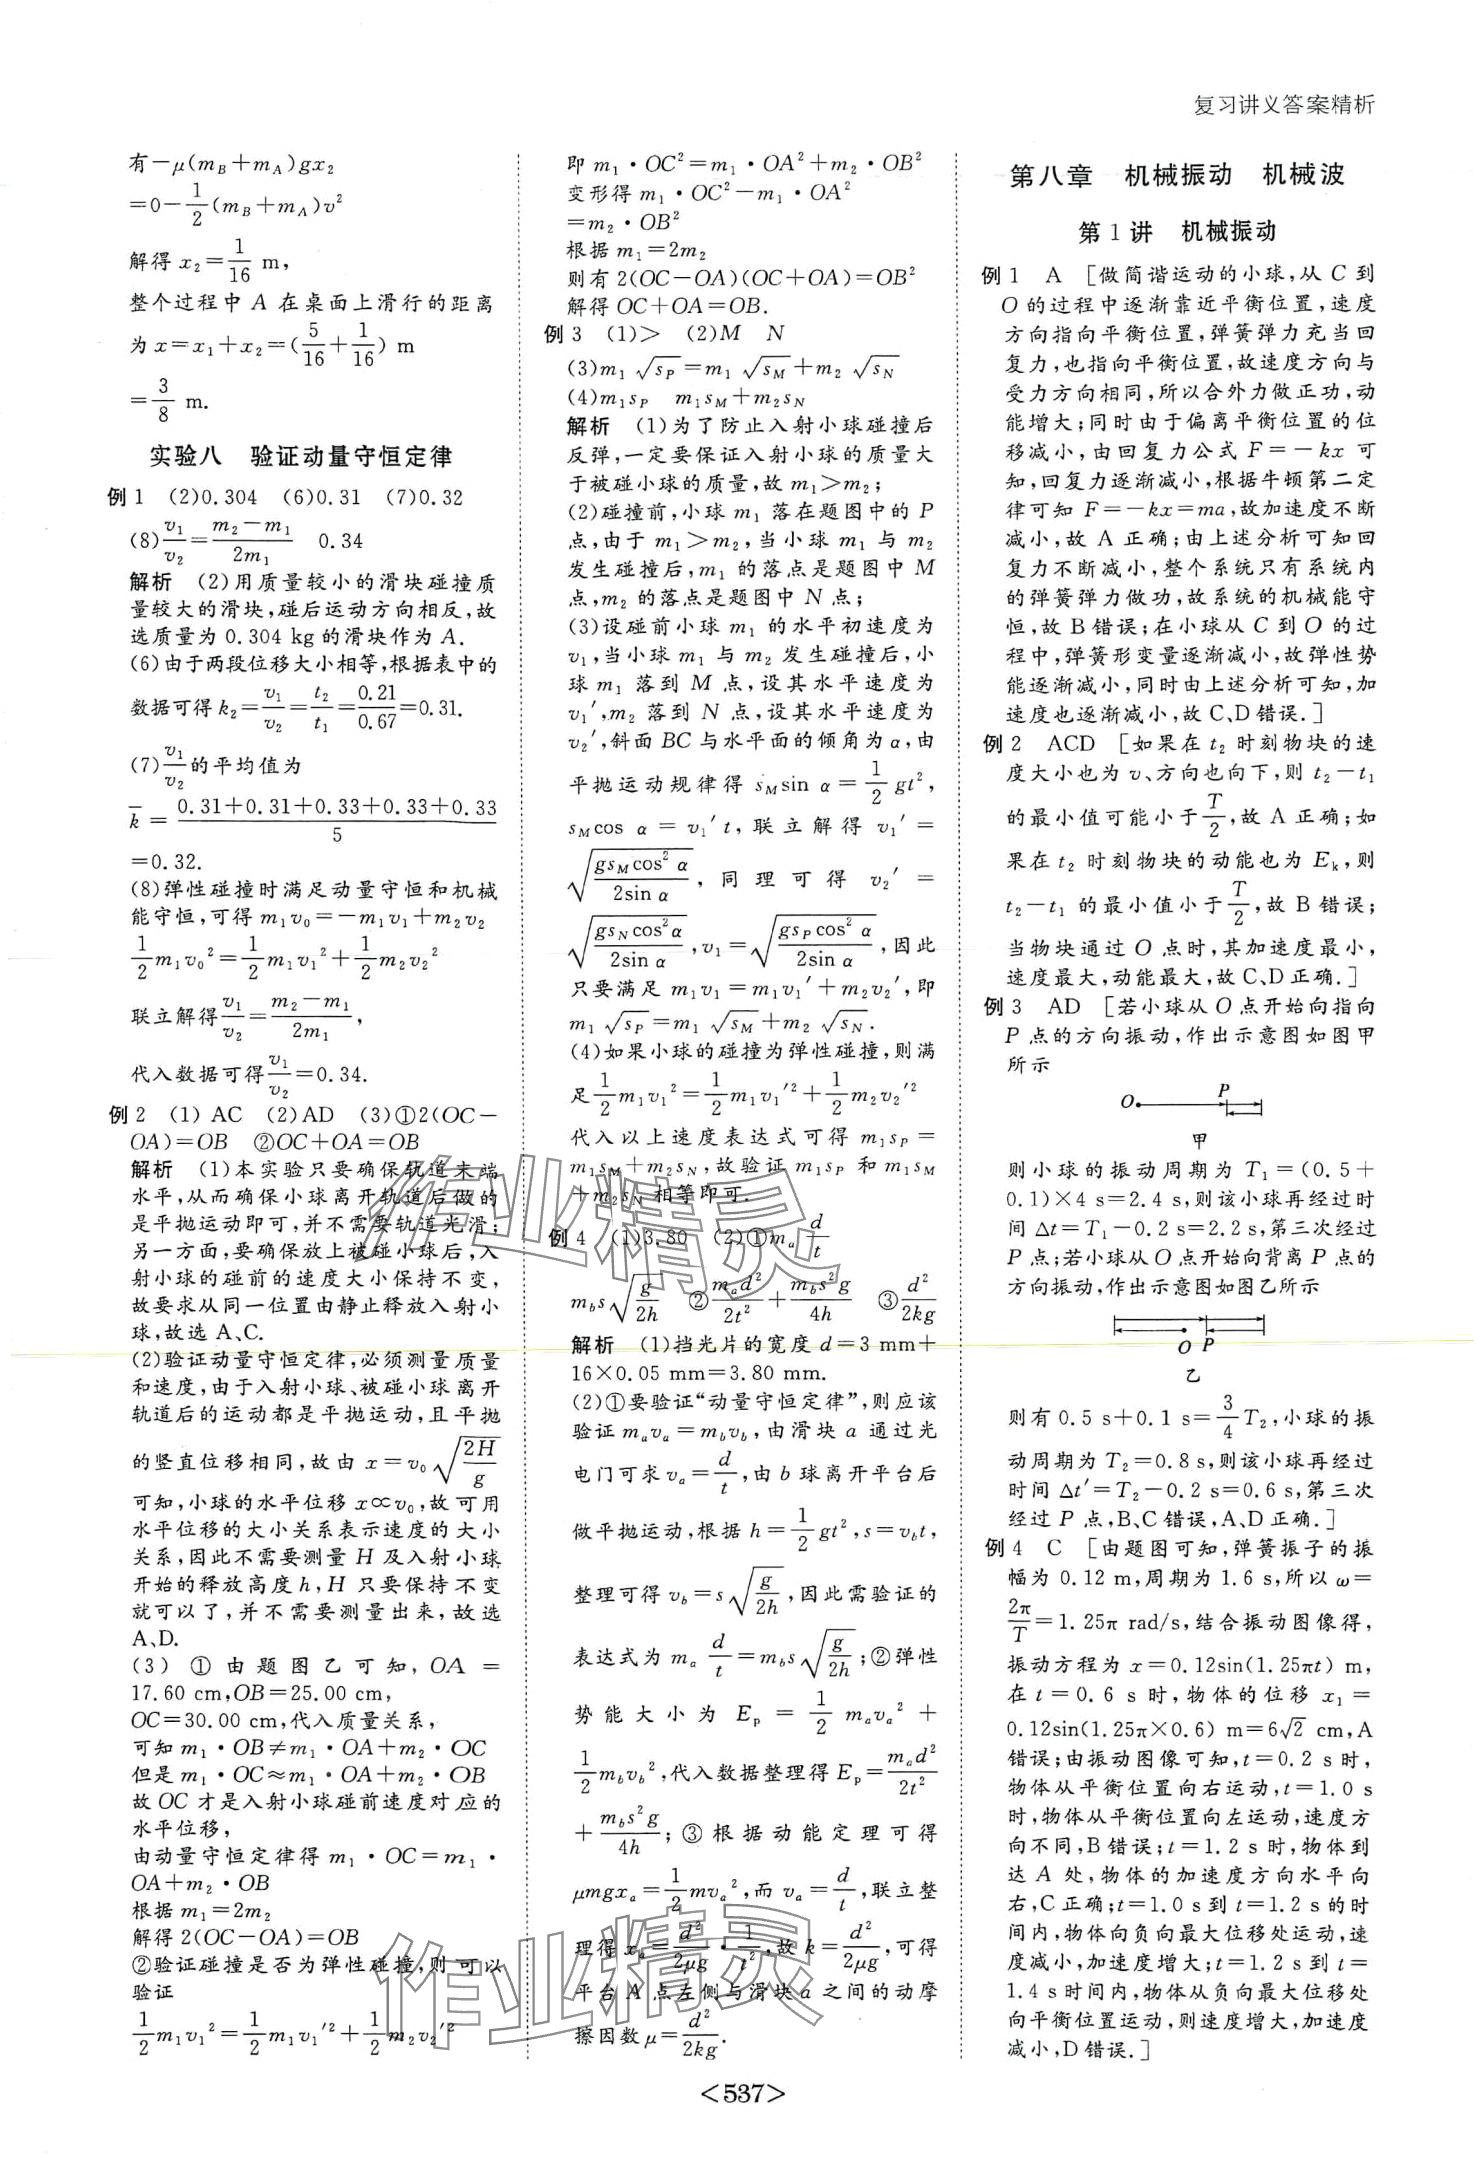 复习讲义答案精析
有－μ(m_B＋m_A)gx₂
＝0－1/2(m_B＋m_A)v²
解得 x₂＝1/16 m，
整个过程中 A 在桌面上滑行的距离
为 x＝x₁＋x₂＝(5/16＋1/16) m
＝3/8 m.
实验八　验证动量守恒定律
例1　(2)0.304　(6)0.31　(7)0.32
(8)v₁/v₂＝(m₂－m₁)/2m₁　0.34
解析　(2)用质量较小的滑块碰撞质
量较大的滑块，碰后运动方向相反，故
选质量为 0.304 kg 的滑块作为 A.
(6)由于两段位移大小相等，根据表中的
数据可得 k₂＝v₁/v₂＝t₂/t₁＝0.21/0.67＝0.31.
(7)v₁/v₂的平均值为
k̅＝(0.31＋0.31＋0.33＋0.33＋0.33)/5
＝0.32.
(8)弹性碰撞时满足动量守恒和机械
能守恒，可得 m₁v₀＝－m₁v₁＋m₂v₂
1/2m₁v₀²＝1/2m₁v₁²＋1/2m₂v₂²
联立解得v₁/v₂＝(m₂－m₁)/2m₁，
代入数据可得v₁/v₂＝0.34.
例2　(1) AC　(2)AD　(3)①2(OC－
OA)＝OB　②OC＋OA＝OB
解析　(1)本实验只要确保轨道末端
水平，从而确保小球离开轨道后做的
是平抛运动即可，并不需要轨道光滑；
另一方面，要确保放上被碰小球后，入
射小球的碰前的速度大小保持不变，
故要求从同一位置由静止释放入射小
球，故选A、C.
(2)验证动量守恒定律，必须测量质量
和速度，由于入射小球、被碰小球离开
轨道后的运动都是平抛运动，且平抛
的竖直位移相同，故由 x＝v₀√(2H/g)
可知，小球的水平位移 x∝v₀，故可用
水平位移的大小关系表示速度的大小
关系，因此不需要测量 H 及入射小球
开始的释放高度h，H 只要保持不变
就可以了，并不需要测量出来，故选
A、D.
(3) ① 由题图乙可知，OA ＝
17.60 cm，OB＝25.00 cm，
OC＝30.00 cm，代入质量关系，
可知 m₁·OB≠m₁·OA＋m₂·OC
但是 m₁·OC≈m₁·OA＋m₂·OB
故 OC 才是入射小球碰前速度对应的
水平位移，
由动量守恒定律得 m₁·OC＝m₁·
OA＋m₂·OB
根据 m₁＝2m₂
解得 2(OC－OA)＝OB
②验证碰撞是否为弹性碰撞，则可以
验证
1/2m₁v₁²＝1/2m₁v₁′²＋1/2m₂v₂′²
即 m₁·OC²＝m₁·OA²＋m₂·OB²
变形得 m₁·OC²－m₁·OA²
＝m₂·OB²
根据 m₁＝2m₂
则有 2(OC－OA)(OC＋OA)＝OB²
解得 OC＋OA＝OB.
例3　(1)＞　(2)M　N
(3)m₁√s_P＝m₁√s_M＋m₂√s_N
(4)m₁s_P　m₁s_M＋m₂s_N
解析　(1)为了防止入射小球碰撞后
反弹，一定要保证入射小球的质量大
于被碰小球的质量，故 m₁＞m₂；
(2)碰撞前，小球 m₁ 落在题图中的 P
点，由于 m₁＞m₂，当小球 m₁ 与 m₂
发生碰撞后，m₁ 的落点是题图中 M
点，m₂ 的落点是题图中 N 点；
(3)设碰前小球 m₁ 的水平初速度为
v₁，当小球 m₁ 与 m₂ 发生碰撞后，小
球 m₁ 落到 M 点，设其水平速度为
v₁′，m₂ 落到 N 点，设其水平速度为
v₂′，斜面 BC 与水平面的倾角为 α，由
平抛运动规律得 s_M sin α＝1/2gt²，
s_M cos α＝v₁′t，联立解得 v₁′＝
√(gs_M cos² α/2sin α)，同理可得 v₂′＝
√(gs_N cos² α/2sin α)，v₁＝√(gs_P cos² α/2sin α)，因此
只要满足 m₁v₁＝m₁v₁′＋m₂v₂′，即
m₁√s_P＝m₁√s_M＋m₂√s_N.
(4)如果小球的碰撞为弹性碰撞，则满
足1/2m₁v₁²＝1/2m₁v₁′²＋1/2m₂v₂′²
代入以上速度表达式可得 m₁s_P＝
m₁s_M＋m₂s_N，故验证 m₁s_P 和 m₁s_M
＋m₂s_N 相等即可.
例4　(1)3.80　(2)①m_a d/t
m_b s√(g/2h)　②m_a d²/2t²＋m_b s²g/4h　③d²/2kg
解析　(1)挡光片的宽度 d＝3 mm＋
16×0.05 mm＝3.80 mm.
(2)①要验证“动量守恒定律”，则应该
验证 m_a v_a＝m_b v_b，由滑块 a 通过光
电门可求 v_a＝d/t，由 b 球离开平台后
做平抛运动，根据 h＝1/2gt²，s＝v_b t，
整理可得 v_b＝s√(g/2h)，因此需验证的
表达式为 m_a d/t＝m_b s√(g/2h)；②弹性
势能大小为 E_p＝1/2m_a v_a²＋
1/2m_b v_b²，代入数据整理得E_p＝m_a d²/2t²
＋m_b s²g/4h；③根据动能定理可得
μmgx_a＝1/2mv_a²，而 v_a＝d/t，联立整
理得 x_a＝d²/2μg·1/t²，故 k＝d²/2μg，可得
平台 A 点左侧与滑块 a 之间的动摩
擦因数 μ＝d²/2kg.
第八章　机械振动　机械波
第1讲　机械振动
例1　A　[做简谐运动的小球，从 C 到
O 的过程中逐渐靠近平衡位置，速度
方向指向平衡位置，弹簧弹力充当回
复力，也指向平衡位置，故速度方向与
受力方向相同，所以合外力做正功，动
能增大；同时由于偏离平衡位置的位
移减小，由回复力公式 F＝－kx 可
知，回复力逐渐减小，根据牛顿第二定
律可知 F＝－kx＝ma，故加速度不断
减小，故 A 正确；由上述分析可知回
复力不断减小，整个系统只有系统内
的弹簧弹力做功，故系统的机械能守
恒，故 B 错误；在小球从 C 到 O 的过
程中，弹簧形变量逐渐减小，故弹性势
能逐渐减小，同时由上述分析可知，加
速度也逐渐减小，故C、D错误.]
例2　ACD　[如果在 t₂ 时刻物块的速
度大小也为 v、方向也向下，则 t₂－t₁
的最小值可能小于T/2，故 A 正确；如
果在 t₂ 时刻物块的动能也为 E_k，则
t₂－t₁ 的最小值小于T/2，故 B 错误；
当物块通过 O 点时，其加速度最小，
速度最大，动能最大，故C、D正确.]
例3　AD　[若小球从O点开始向指向
P 点的方向振动，作出示意图如图甲
所示
O　P
甲
则小球的振动周期为 T₁＝(0.5＋
0.1)×4 s＝2.4 s，则该小球再经过时
间 Δt＝T₁－0.2 s＝2.2 s，第三次经过
P 点；若小球从 O 点开始向背离 P 点的
方向振动，作出示意图如图乙所示
O　P
乙
则有 0.5 s＋0.1 s＝3/4T₂，小球的振
动周期为 T₂＝0.8 s，则该小球再经过
时间 Δt′＝T₂－0.2 s＝0.6 s，第三次
经过 P 点，B、C错误，A、D正确.]
例4　C　[由题图可知，弹簧振子的振
幅为 0.12 m，周期为 1.6 s，所以 ω＝
2π/T＝1.25π rad/s，结合振动图像得，
振动方程为 x＝0.12sin(1.25πt) m，
在 t＝0.6 s 时，物体的位移 x₁＝
0.12sin(1.25π×0.6) m＝6√2 cm，A
错误；由振动图像可知，t＝0.2 s 时，
物体从平衡位置向右运动，t＝1.0 s
时，物体从平衡位置向左运动，速度方
向不同，B错误；t＝1.2 s 时，物体到
达 A 处，物体的加速度方向水平向
右，C正确；t＝1.0 s 到 t＝1.2 s 的时
间内，物体向负向最大位移处运动，速
度减小，加速度增大；t＝1.2 s 到 t＝
1.4 s 时间内，物体从负向最大位移处
向平衡位置运动，则速度增大，加速度
减小，D错误.]
作业精灵
作业精灵
<537>